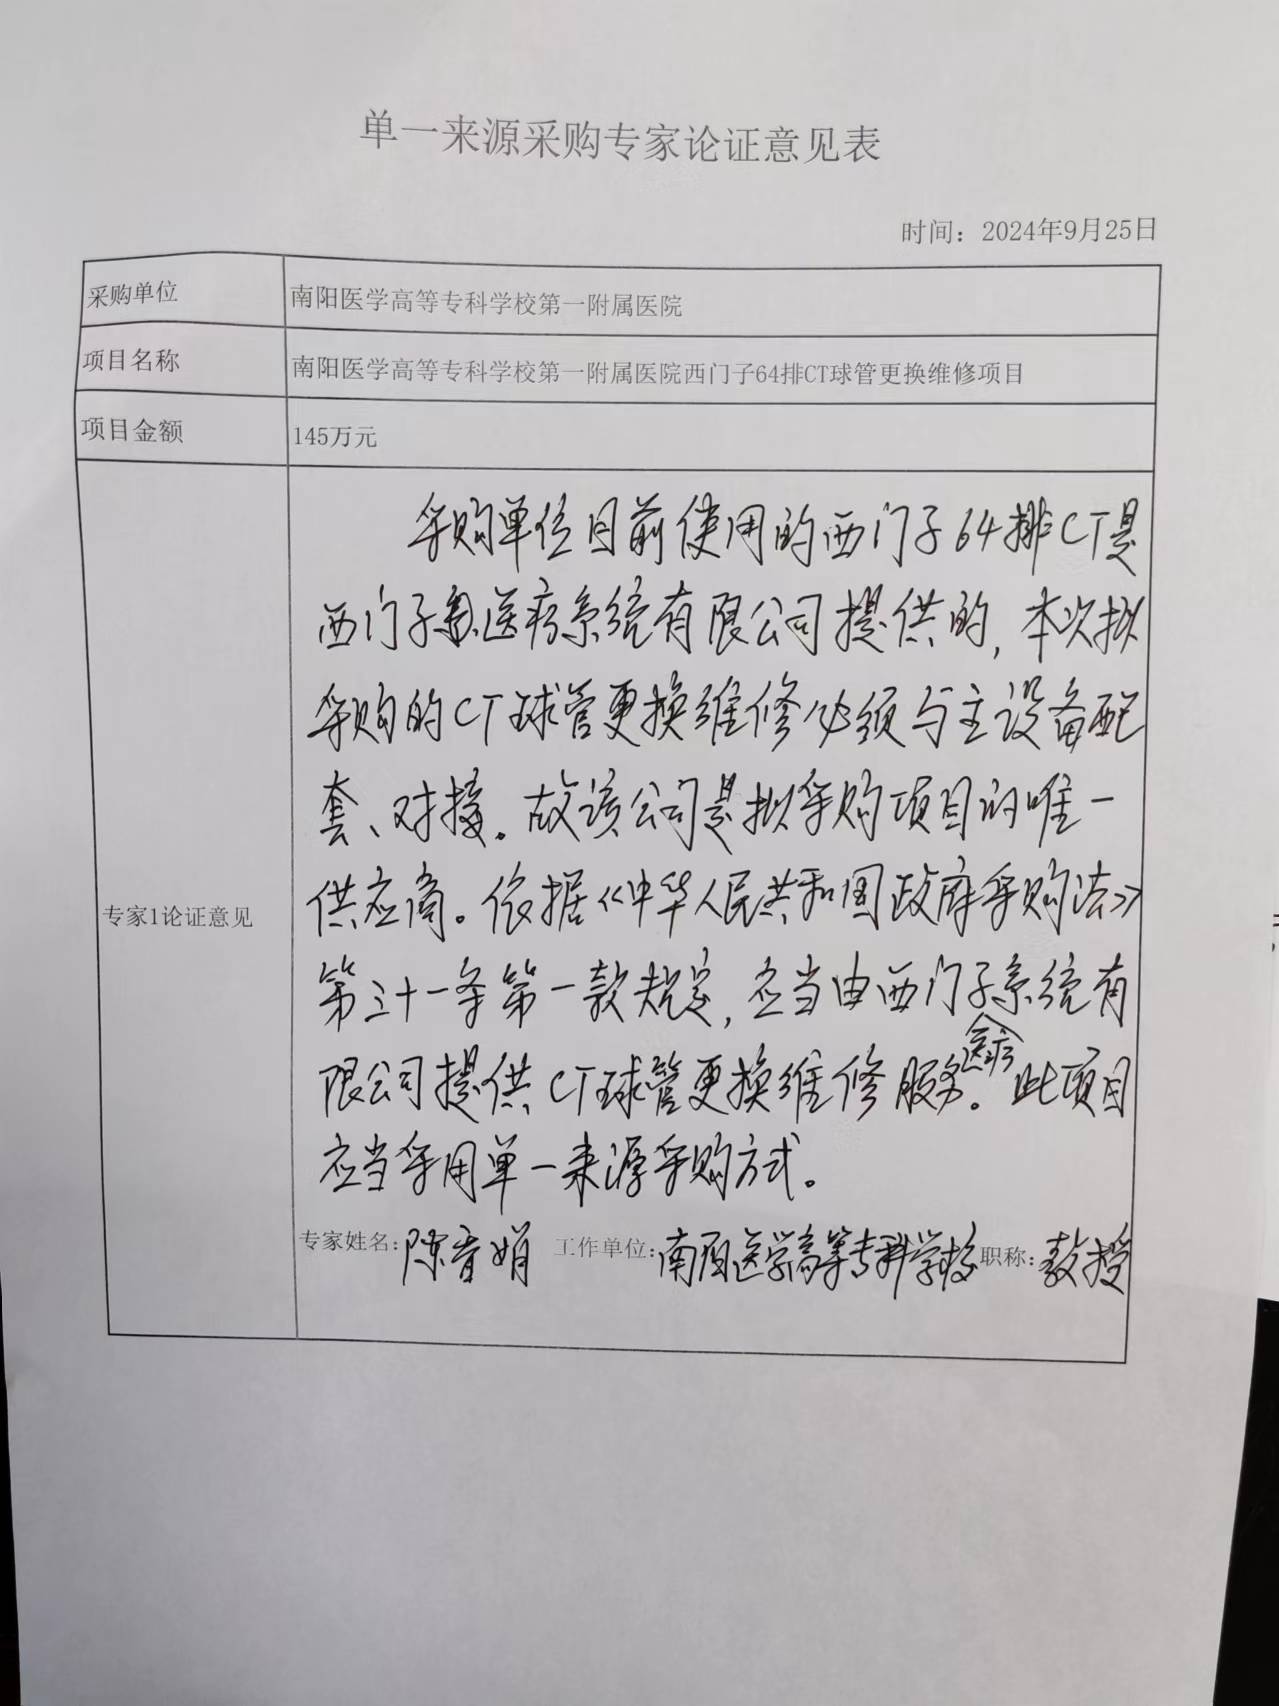 单一来源采购专家论证意见表
时间：2024年9月25日
采购单位
南阳医学高等专科学校第一附属医院
项目名称
南阳医学高等专科学校第一附属医院西门子64排CT球管更换维修项目
项目金额
145万元
专家1论证意见
采购单位目前使用的西门子64排CT是
西门子医疗系统有限公司提供的，本次拟
采购的CT球管更换维修必须与主设备配
套、对接。故该公司是拟采购项目的唯一
供应商。依据《中华人民共和国政府采购法》
第三十一条第一款规定，应当由西门子系统有
医疗
限公司提供CT球管更换维修服务。此项目
应当采用单一来源采购方式。
专家姓名：陈音娟 工作单位：南阳医学高等专科学校 职称：教授